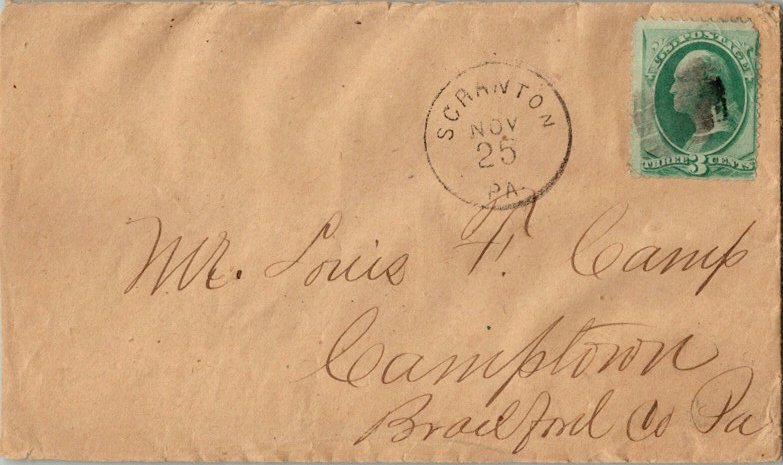 U.S. POSTAGE
THREE 3 CENTS
SCRANTON
NOV
25
PA
Mr. Louis F. Camp
Camptown
Bradford Co Pa